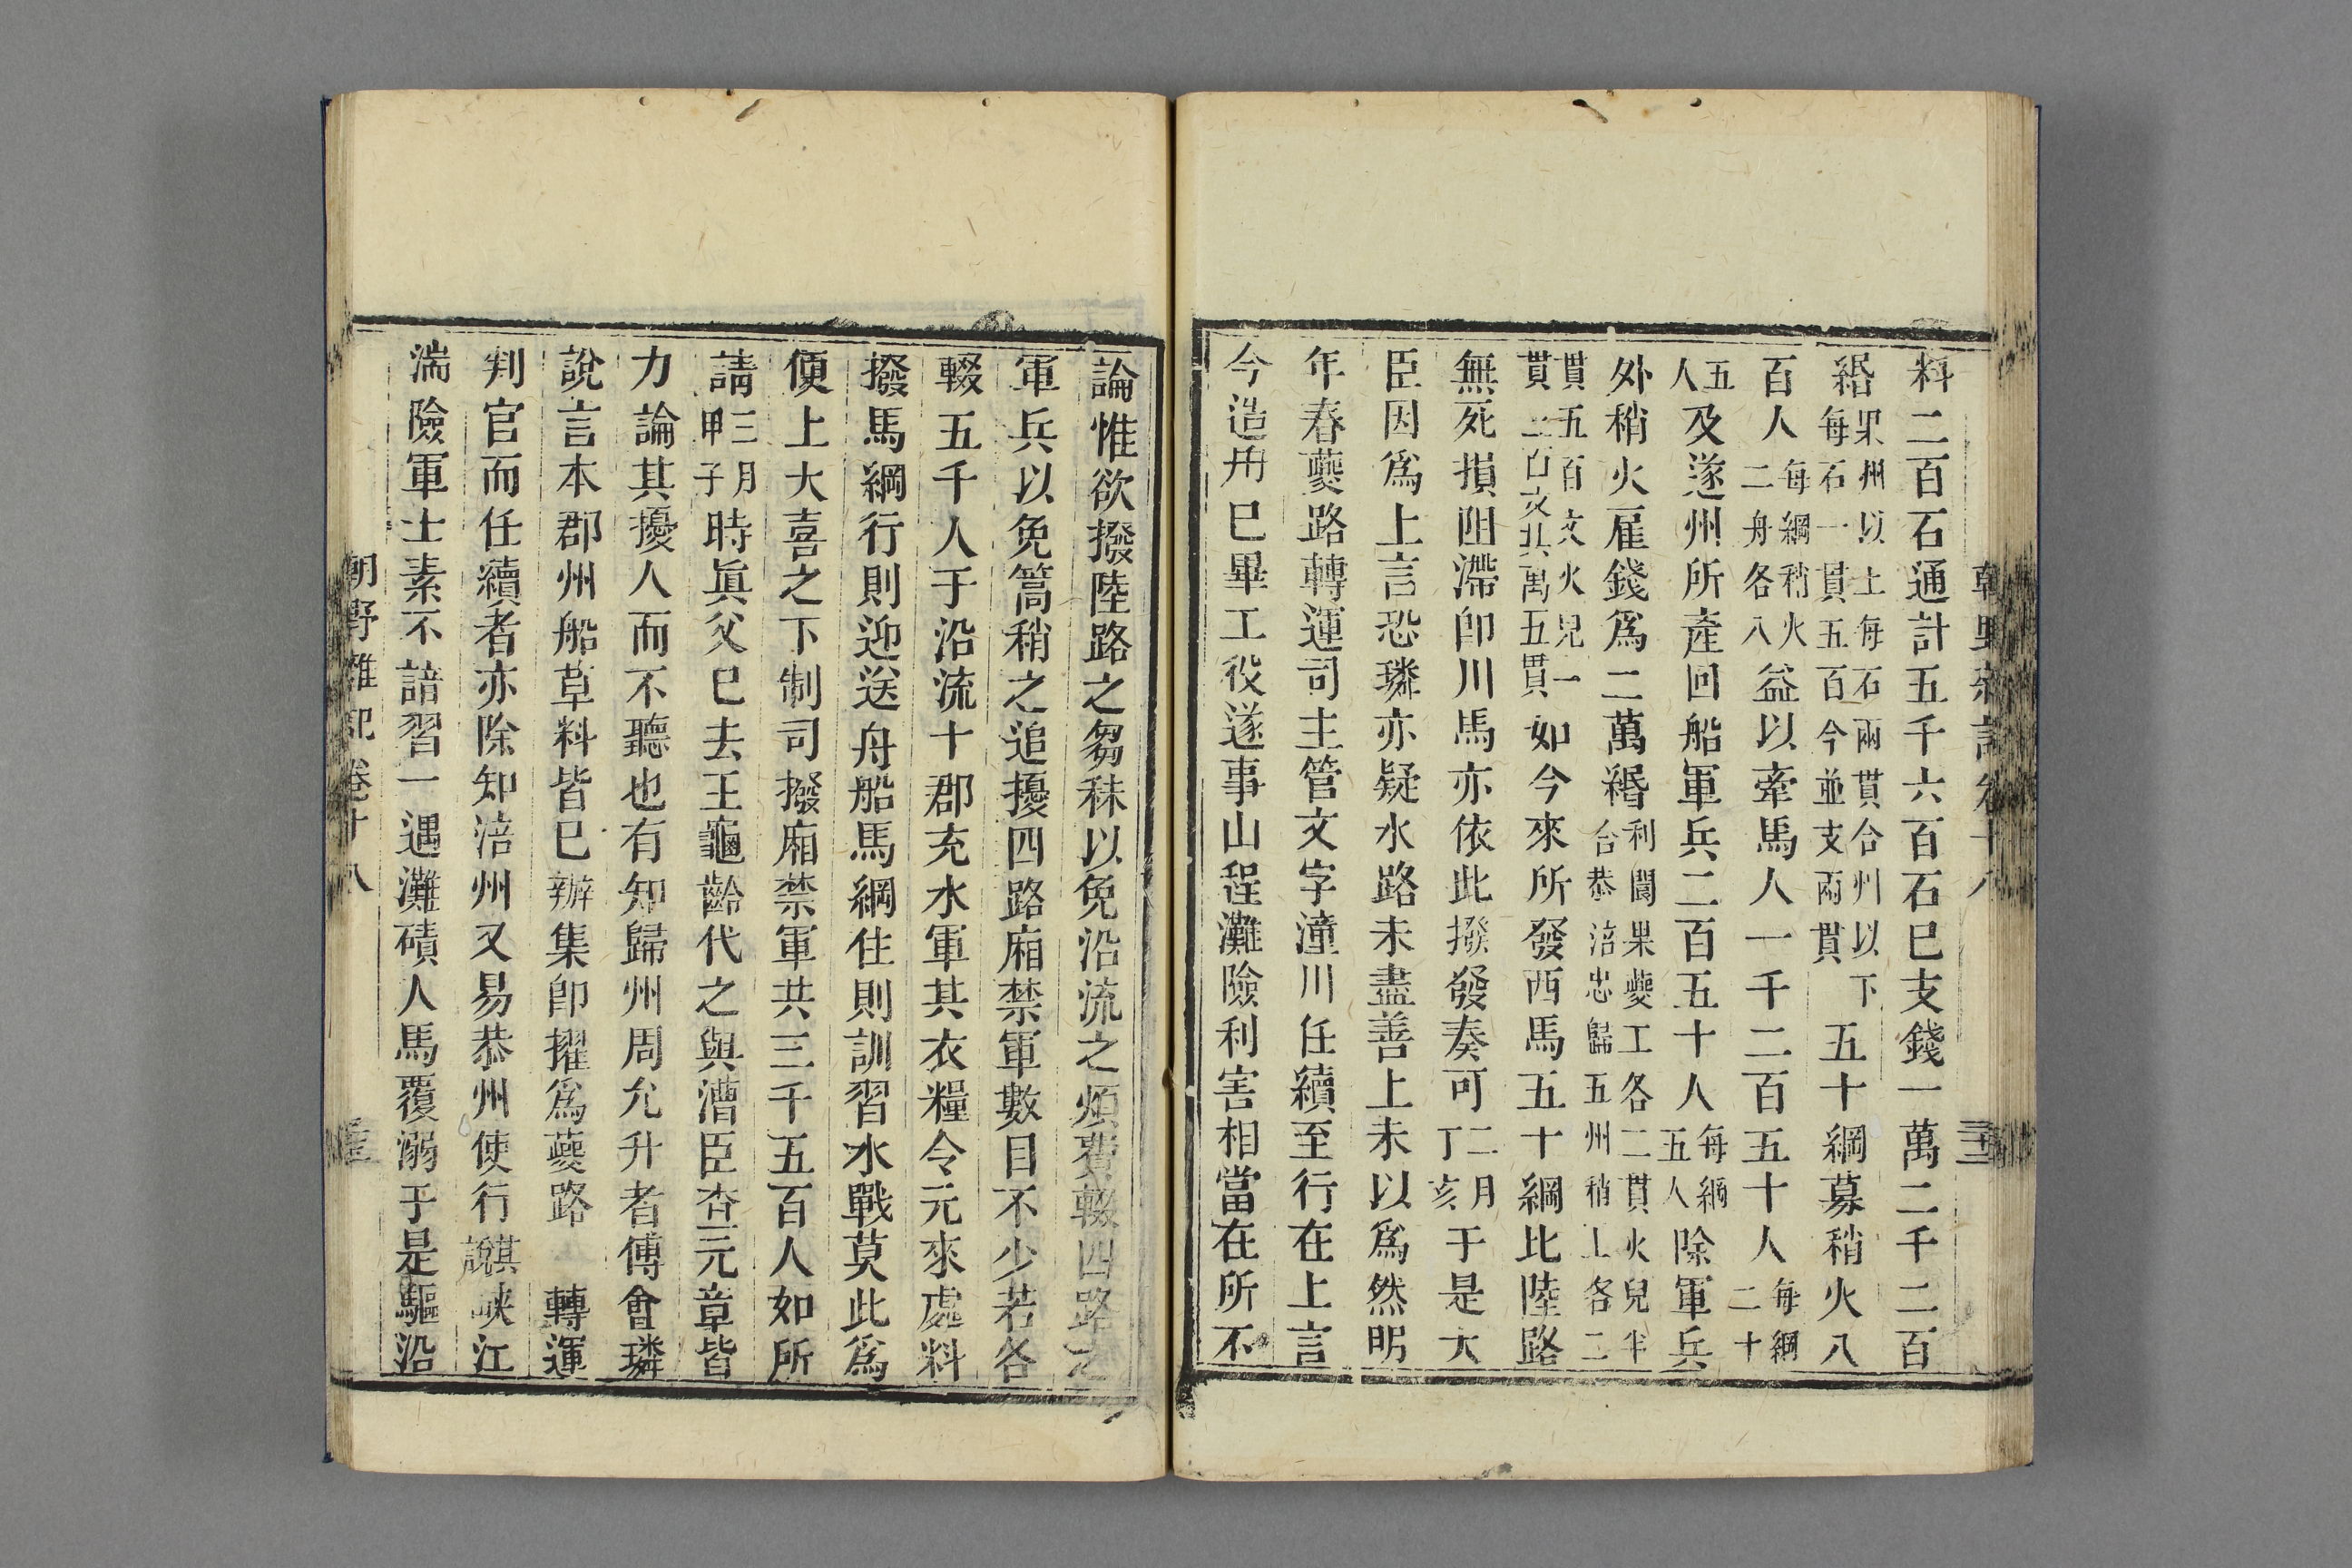 料二百石通計五千六百石巳支錢一萬二千二百
緡果州以上每石兩貫合州以下每石一貫五百今並支兩貫五十綱募稍火八
百人每綱稍火二舟各八益以牽馬人一千二百五十人每綱二十
五人及遂州所產回船軍兵二百五十人每綱五人除軍兵
外稍火雇錢爲二萬緡利閬果夔工各二貫火兒半合恭涪忠歸五州稍工各二
貫五百文火兒一貫二百文共萬五貫如今來所發西馬五十綱比陸路
無死損阻滯卽川馬亦依此撥發奏可二月丁亥于是大
臣因爲上言恐璘亦疑水路未盡善上未以爲然明
年春夔路轉運司主管文字潼川任續至行在上言
今造舟巳畢工役遂事山程灘險利害相當在所不
論惟欲撥陸路之芻秣以免沿流之煩費輟四路之
軍兵以免篙稍之追擾四路廂禁軍數目不少若各
輟五千人于沿流十郡充水軍其衣糧令元來處料
撥馬綱行則迎送舟船馬綱住則訓習水戰莫此爲
便上大喜之下制司撥廂禁軍共三千五百人如所
請三月甲子時眞父巳去王龜齡代之與漕臣查元章皆
力論其擾人而不聽也有知歸州周允升者傅會璘
說言本郡州船草料皆巳辦集卽擢爲夔路轉運
判官而任續者亦除知涪州又易恭州使行其說峽江
湍險軍士素不諳習一遇灘磧人馬覆溺于是驅沿
朝野雜記卷十八